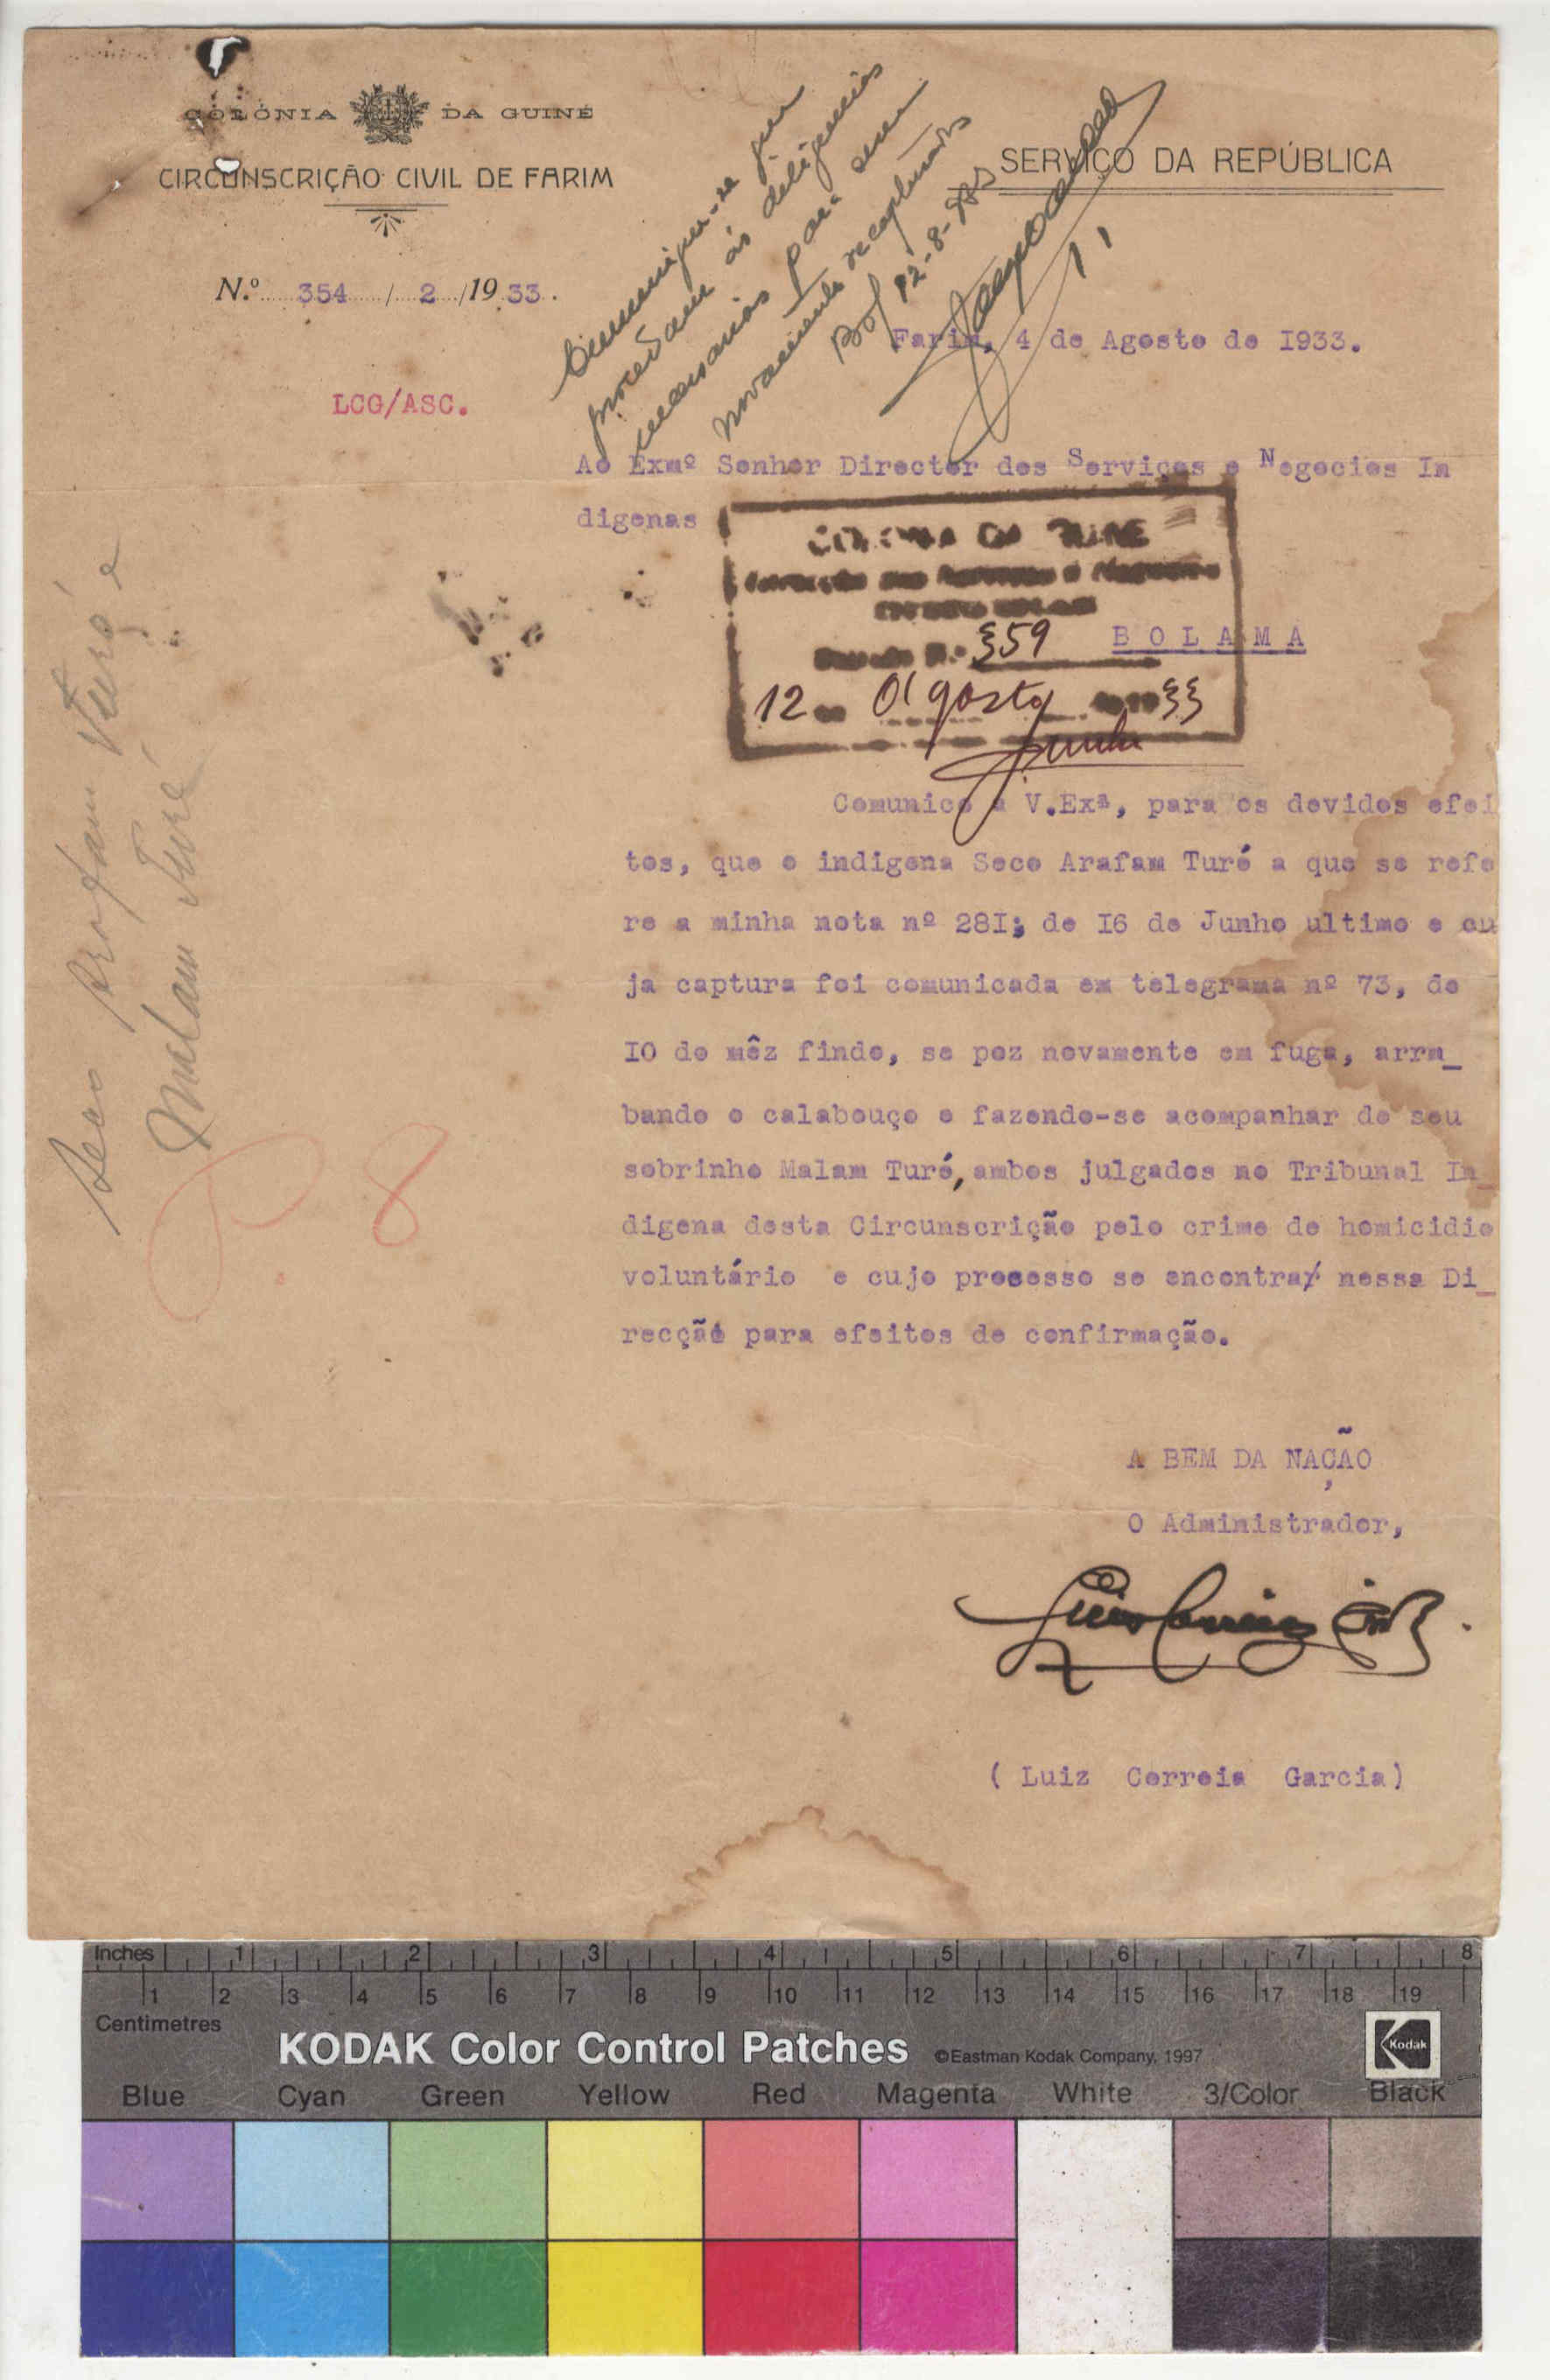 COLÓNIA DA GUINÉ
CIRCUNSCRIÇÃO CIVIL DE FARIM
SERVIÇO DA REPÚBLICA
N.º 354 / 2 /1933.
Comunique-se que
procedam ás deligencias
necessarias para serem
novamente recapturados
Bol 12-8-933
Farim, 4 de Agosto de I933.
LCG/ASC.
Ao Exmº Senhor Director dos Serviços e Negocios In
digenas
COLONIA DA GUINE
Direcção dos Serviços e Negocios
359
BOLAMA
12 Agosto 33
Comunico a V.Exª, para os devidos efei
tos, que o indigena Seco Arafam Turé a que se refe
re a minha nota nº 28I; de I6 de Junho ultimo e cu
ja captura foi comunicada em telegrama nº 73, de
IO do mêz findo, se poz novamente em fuga, arrm_
bando o calabouço e fazendo-se acompanhar de seu
sobrinho Malam Turé, ambos julgados no Tribunal In_
digena desta Circunscrição pelo crime de homicidio
voluntário e cujo processo se encontrar nessa Di_
recção para efeitos de confirmação.
A BEM DA NAÇÃO
O Administrador,
( Luiz Correia Garcia)
Seco Arafam Turé e
Malam Turé
P. 8
Inches 1 2 3 4 5 6 7 8
1 2 3 4 5 6 7 8 9 10 11 12 13 14 15 16 17 18 19
Centimetres
KODAK Color Control Patches ©Eastman Kodak Company, 1997 Kodak
Blue Cyan Green Yellow Red Magenta White 3/Color Black